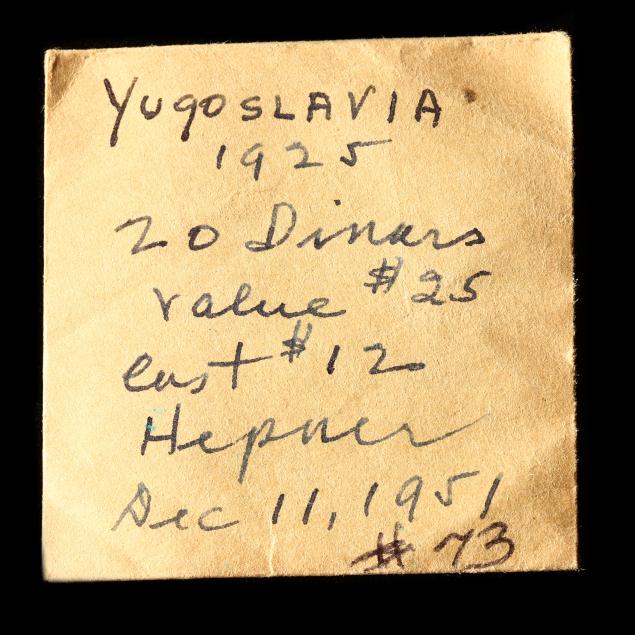 YUGOSLAVIA
1925
20 Dinars
value $25
cost $12
Hepner
Dec 11, 1951
# 73